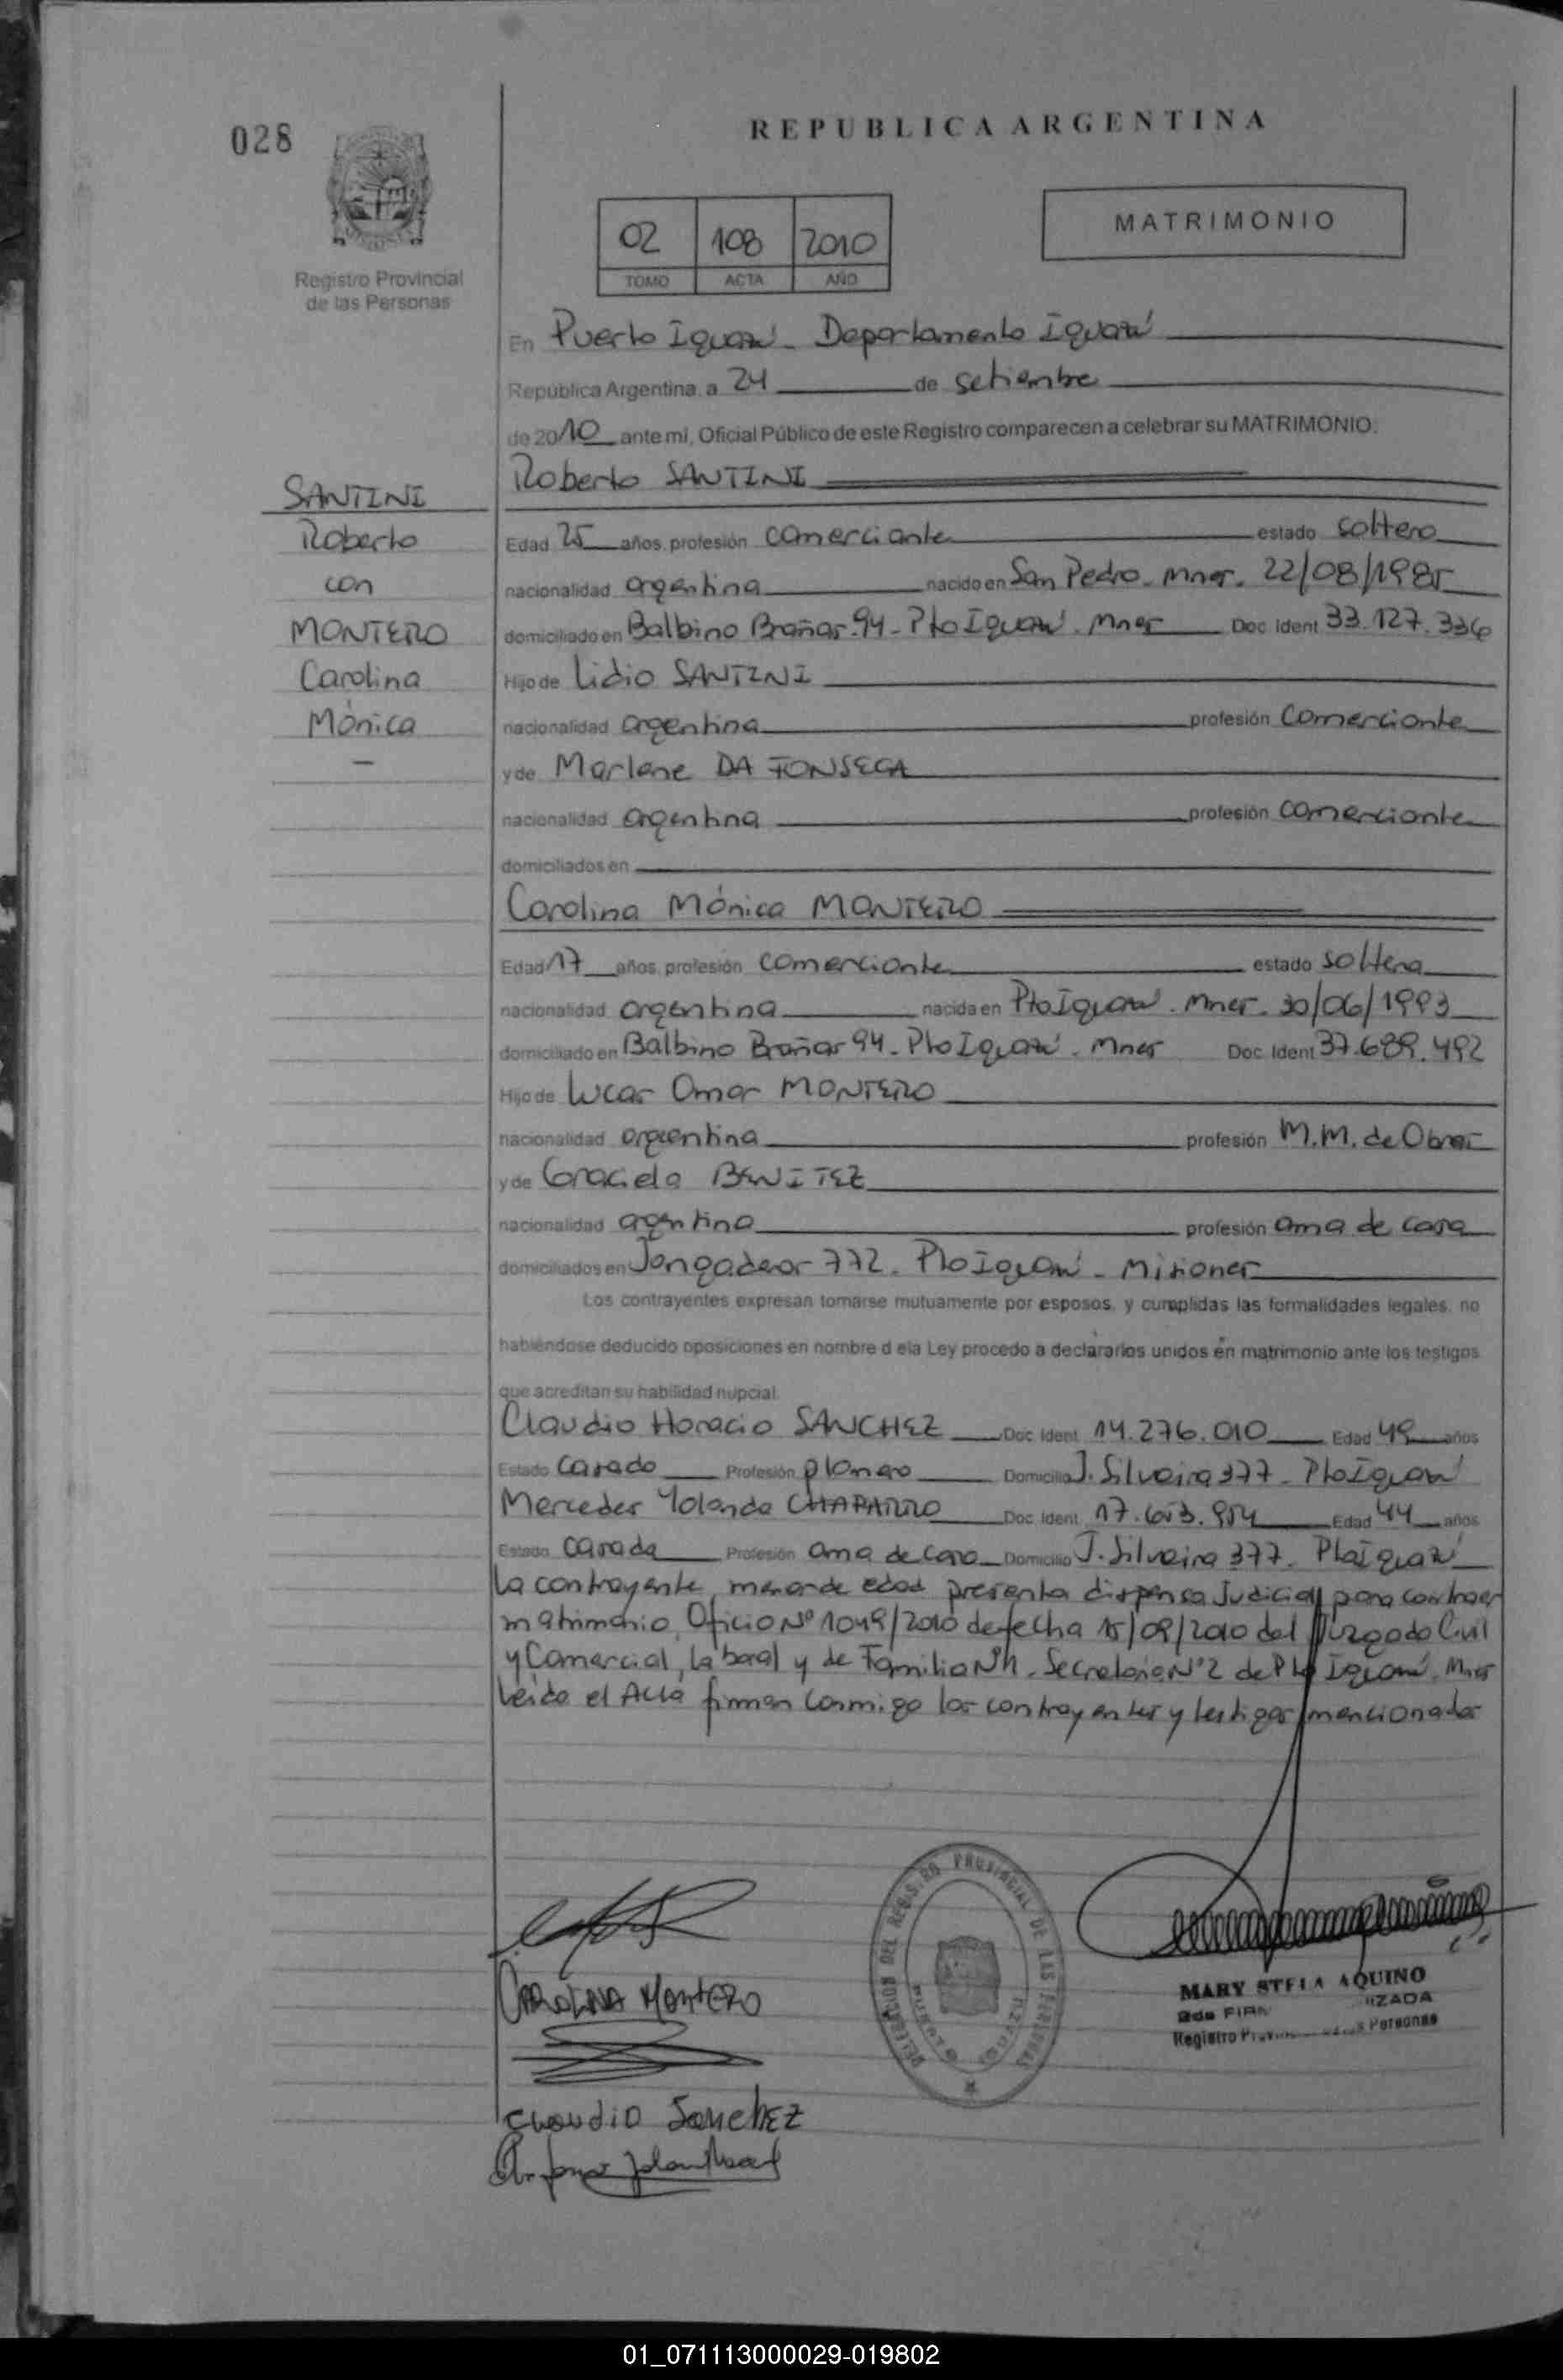 028
REPUBLICA ARGENTINA
Registro Provincial
de las Personas
02 108 2010
TOMO ACTA AÑO
MATRIMONIO
En Puerto Iguazú - Departamento Iguazú
República Argentina, a 24 de setiembre
de 2010 ante mí, Oficial Público de este Registro comparecen a celebrar su MATRIMONIO:
Roberto SANTINI
SANTINI
Roberto
con
MONTERO
Carolina
Mónica
Edad 25 años, profesión comerciante estado soltero
nacionalidad argentina nacido en San Pedro - Mnes. 22/08/1985
domiciliado en Balbino Brañas 94 - Pto Iguazú - Mnes Doc. Ident. 33.127.336
Hijo de Lidio SANTINI
nacionalidad argentina profesión comerciante
y de Marlene DA FONSECA
nacionalidad argentina profesión comerciante
domiciliados en
Carolina Mónica MONTERO
Edad 17 años, profesión comerciante estado soltera
nacionalidad argentina nacida en Pto Iguazú - Mnes - 30/06/1993
domiciliado en Balbino Brañas 94 - Pto Iguazú - Mnes Doc. Ident. 37.689.492
Hijo de Lucas Omar MONTERO
nacionalidad argentina profesión M.M. de Obras
y de Graciela BENITEZ
nacionalidad argentina profesión ama de casa
domiciliados en Jangaderos 772 - Pto Iguazú - Misiones
Los contrayentes expresan tomarse mutuamente por esposos, y cumplidas las formalidades legales, no
habiéndose deducido oposiciones en nombre d ela Ley procedo a declararlos unidos en matrimonio ante los testigos
que acreditan su habilidad nupcial:
Claudio Horacio SANCHEZ Doc. Ident. 14.276.010 Edad 49 años
Estado casado Profesión plomero Domicilio J. Silveira 377 - Pto Iguazú
Mercedes Yolanda CHAPARRO Doc. Ident. 17.653.954 Edad 44 años
Estado casada Profesión ama de casa Domicilio J. Silveira 377 - Pto Iguazú
La contrayente, menor de edad presenta dispensa Judicial para contraer
matrimonio, Oficio Nº 1049/2010 de fecha 15/09/2010 del Juzgado Civil
y Comercial, laboral y de Familia Nº1 - Secretaría Nº2 de Pto Iguazú - Mnes
Leída el Acta firman conmigo los contrayentes y testigos mencionados
DELEGACION DEL REGISTRO PROVINCIAL DE LAS PERSONAS
PUERTO IGUAZU
CAROLINA MONTERO
MARY STELA AQUINO
2da FIRMA
Registro Personas
CLAUDIO SANCHEZ
01_071113000029-019802